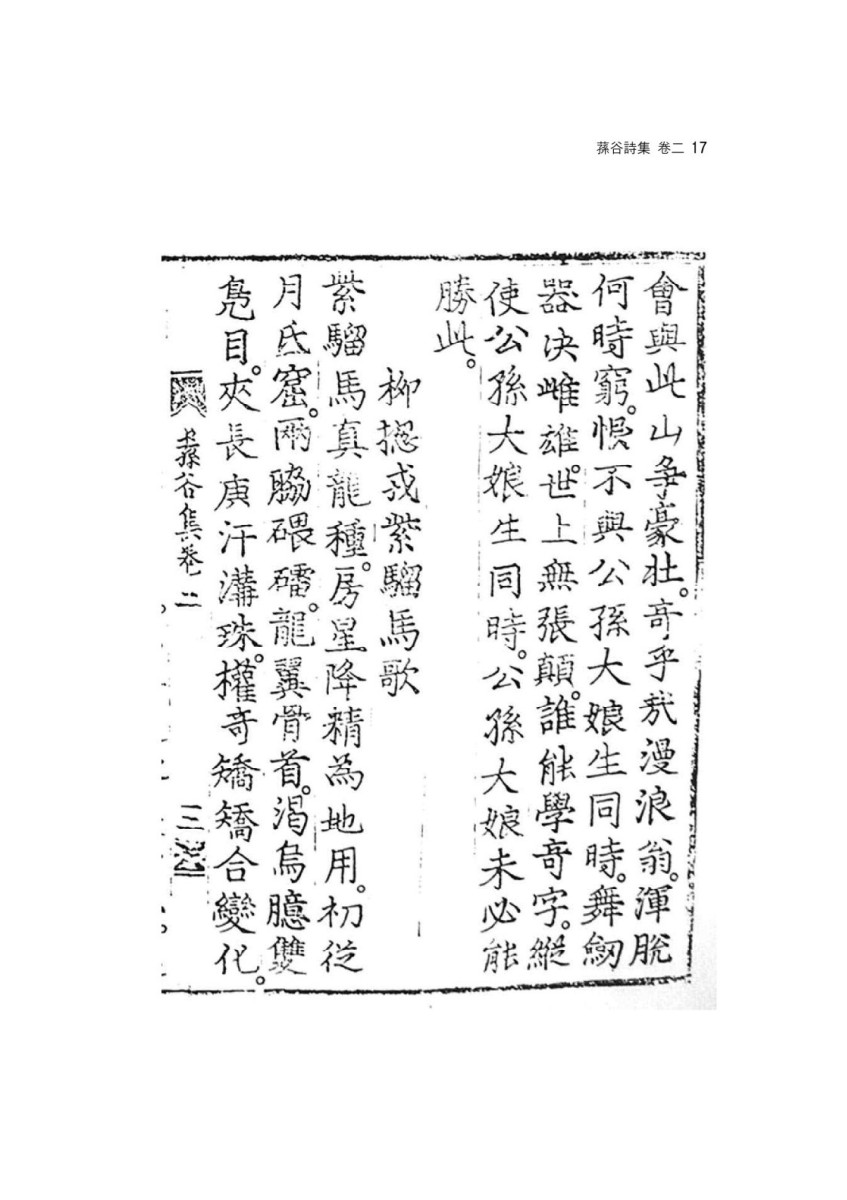 蓀谷詩集 卷二 17
會與此山爭豪壯。奇乎哉漫浪翁。渾脫
何時窮。恨不與公孫大娘生同時。舞劒
器決雌雄。世上無張顛。誰能學奇字。縱
使公孫大娘生同時。公孫大娘未必能
勝此。
柳摠戎紫騮馬歌
紫騮馬真龍種。房星降精為地用。初從
月氐窟。兩脇碨礌。龍翼骨首。渴烏臆雙
鳧目。夾長庚汗溝珠。權奇矯矯合變化。
蓀谷集卷二
三